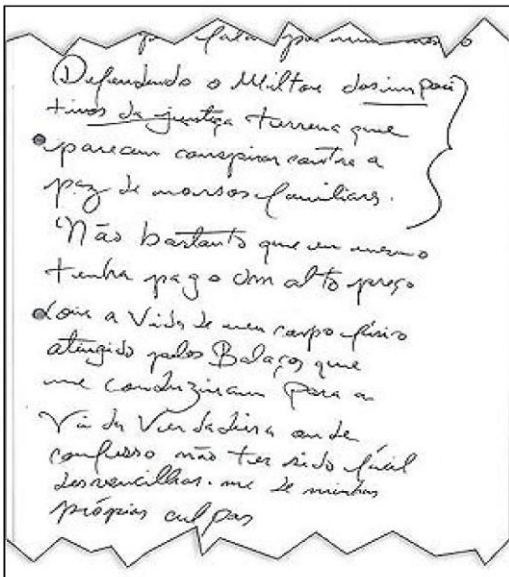 que falar por mim mesmo
Defendendo o Milton dos impera
tivos da justiça terrena que
parecem conspirar contra a
paz de nossos familiares.
Não bastante que eu mesmo
tenha pago um alto preço
com a Vida de meu corpo físico
atingido pelos Balaços que
me conduziram para a
Vida Verdadeira onde
confesso não ter sido fácil
desvencilhar-me de minhas
próprias culpas